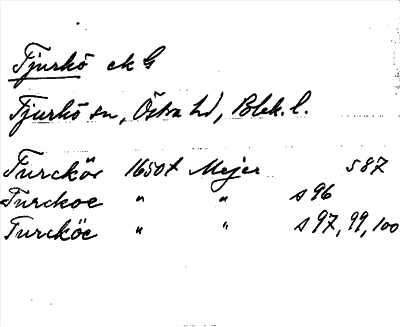 Tjurkö ek G
Tjurkö sn, Östra hd, Blek. l.
Turckör 1650t Mejer s 87
Turckoe " " s 96
Turcköe " " s 97, 99, 100